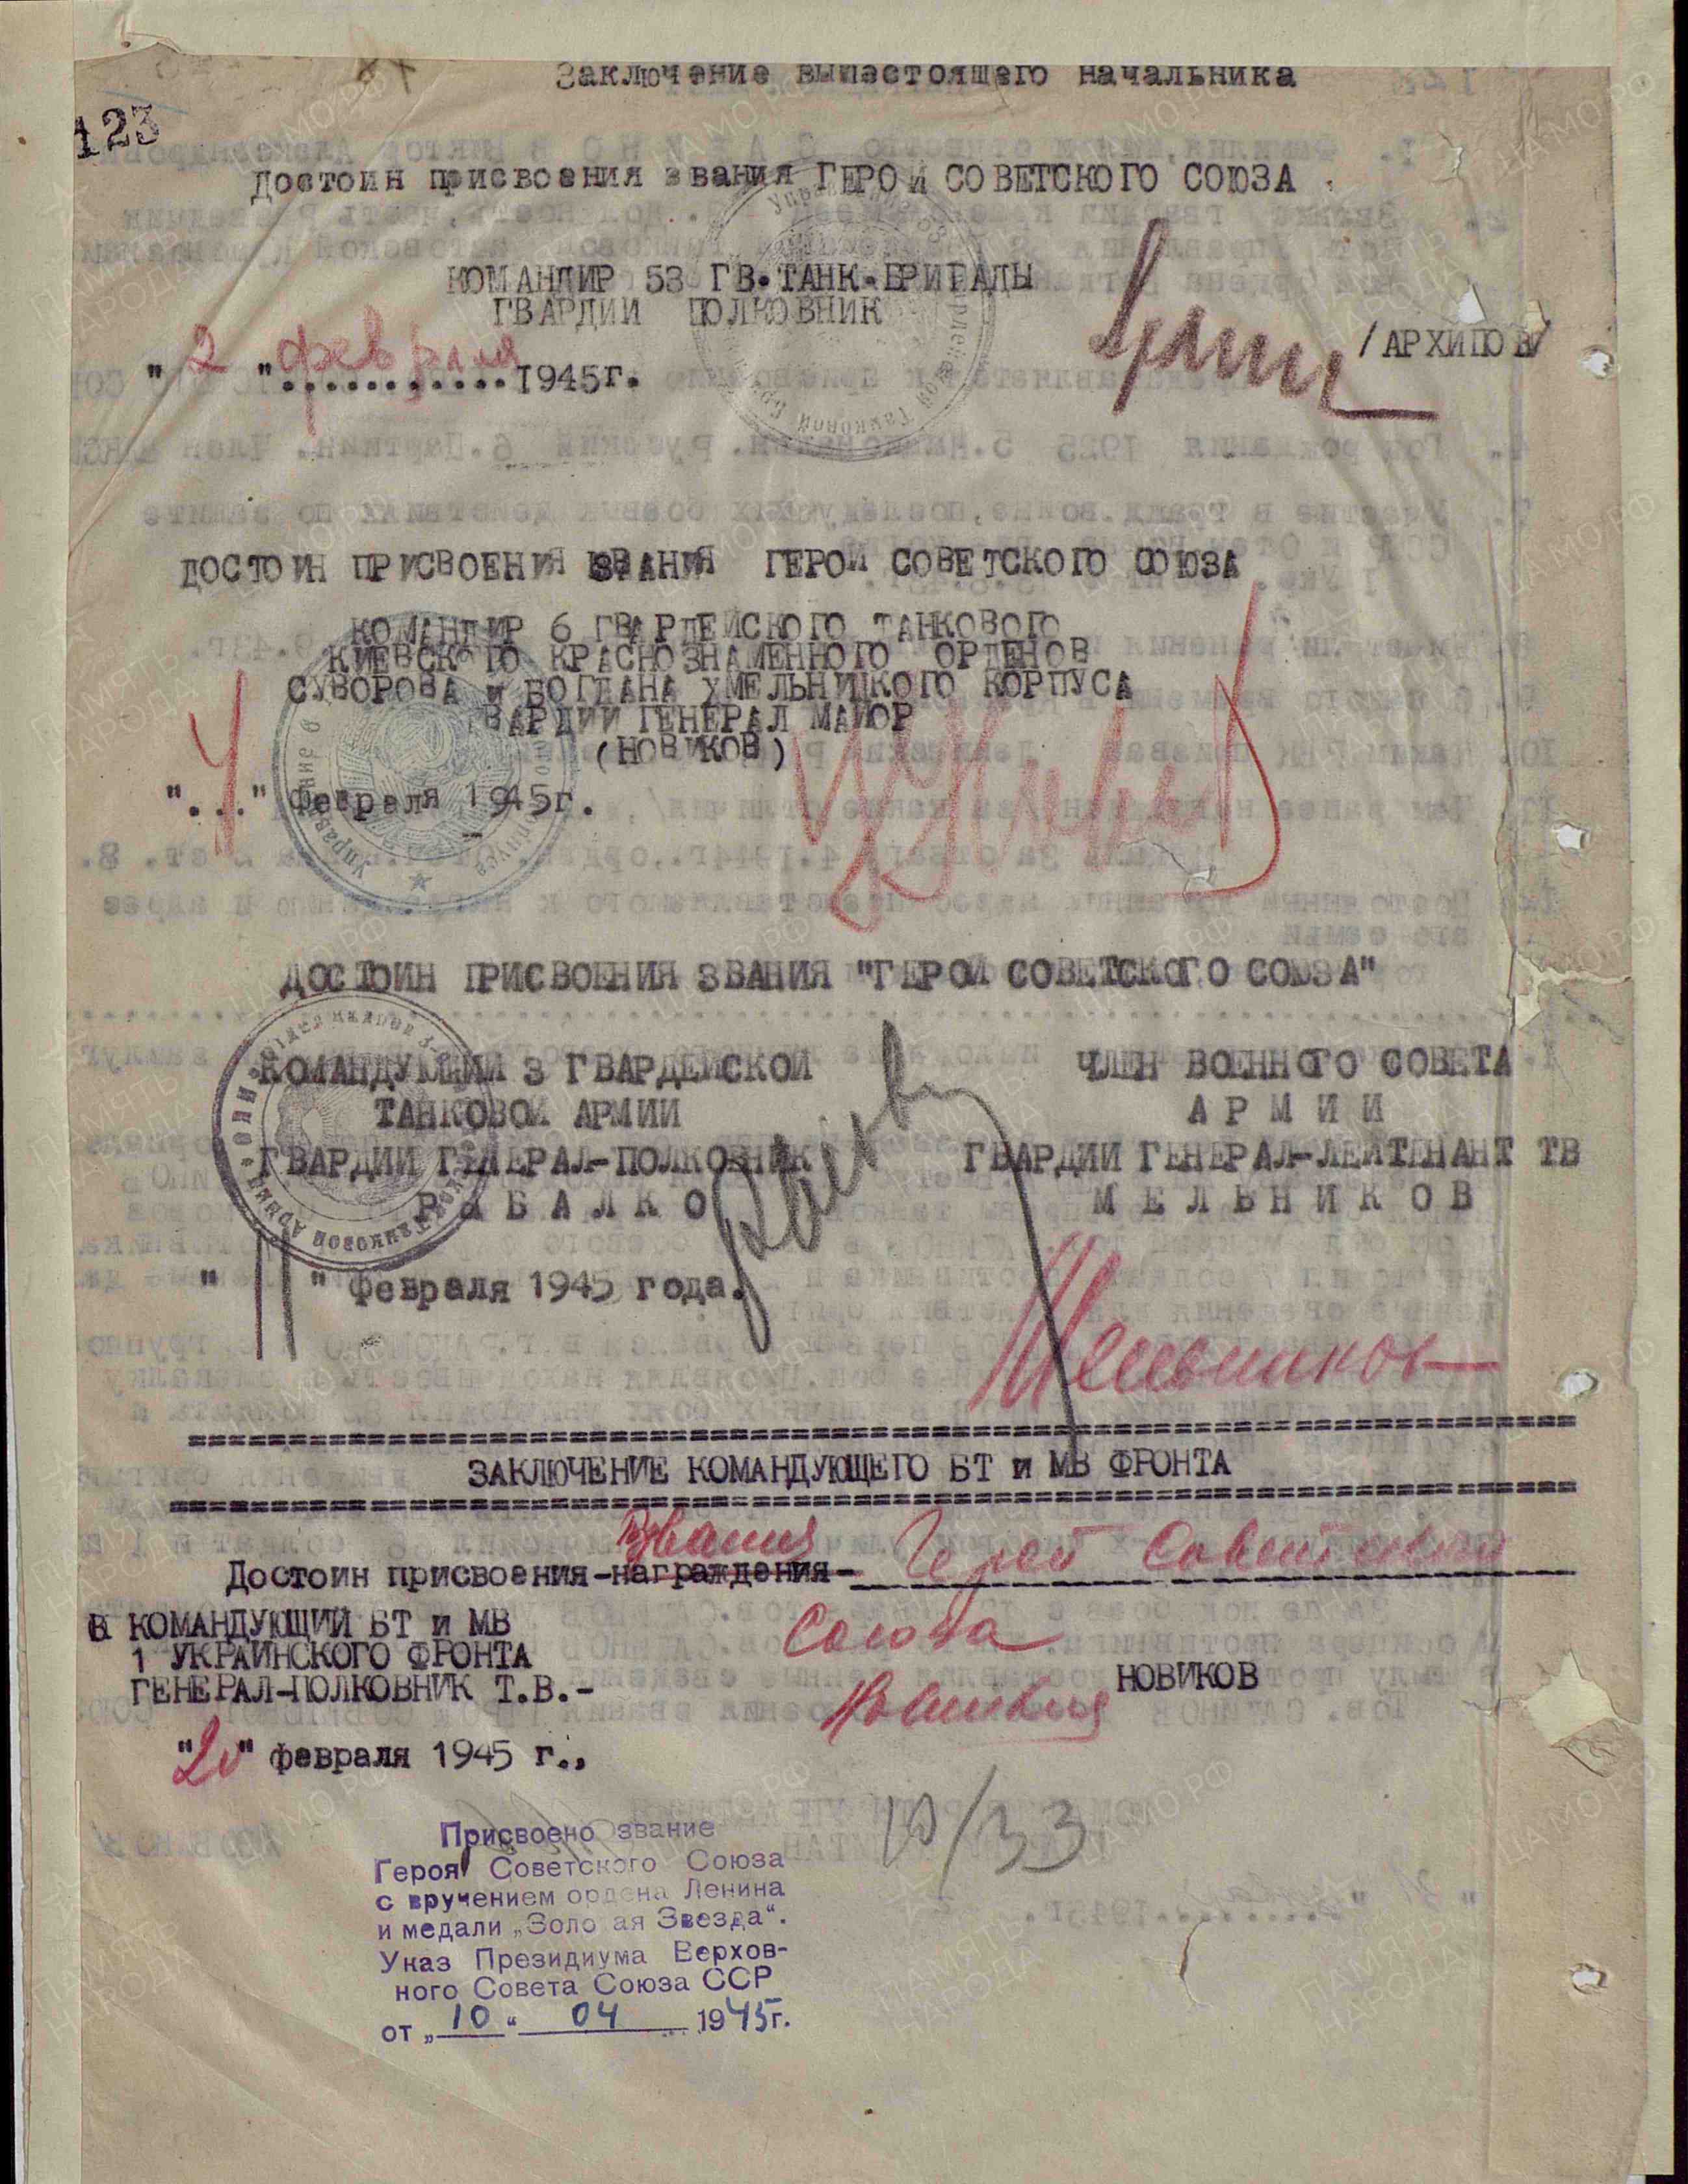 Заключение вышестоящего начальника
123
Достоин присвоения звания ГЕРОЙ СОВЕТСКОГО СОЮЗА.
КОМАНДИР 53 ГВ.ТАНК.БРИГАДЫ
ГВАРДИИ ПОЛКОВНИК
/АРХИПОВ/
"2" февраля 1945г.
ДОСТОИН ПРИСВОЕНИЯ ЗВАНИЯ ГЕРОЙ СОВЕТСКОГО СОЮЗА
КОМАНДИР 6 ГВАРДЕЙСКОГО ТАНКОВОГО
КИЕВСКОГО КРАСНОЗНАМЕННОГО ОРДЕНОВ
СУВОРОВА и БОГДАНА ХМЕЛЬНИЦКОГО КОРПУСА
ГВАРДИИ ГЕНЕРАЛ МАЙОР
(НОВИКОВ)
"..." февраля 1945г.
ДОСТОИН ПРИСВОЕНИЯ ЗВАНИЯ "ГЕРОЙ СОВЕТСКОГО СОЮЗА"
КОМАНДУЮЩИЙ 3 ГВАРДЕЙСКОЙ ЧЛЕН ВОЕННОГО СОВЕТА
ТАНКОВОЙ АРМИИ А Р М И И
ГВАРДИИ ГЕНЕРАЛ-ПОЛКОВНИК ГВАРДИИ ГЕНЕРАЛ-ЛЕЙТЕНАНТ ТВ
Р Ы Б А Л К О М Е Л Ь Н И К О В
"11" февраля 1945 года.
Мельников
ЗАКЛЮЧЕНИЕ КОМАНДУЮЩЕГО БТ и МВ ФРОНТА
звания
Достоин присвоения-награждения- Герой Советского
Союза
КОМАНДУЮЩИЙ БТ и МВ
1 УКРАИНСКОГО ФРОНТА
ГЕНЕРАЛ-ПОЛКОВНИК Т.В.-
НОВИКОВ
"20" февраля 1945 г.,
10/33
Присвоено звание
Героя Советского Союза
с вручением ордена Ленина
и медали „Золотая Звезда“.
Указ Президиума Верхов-
ного Совета Союза ССР
от „10“ 04 1945г.